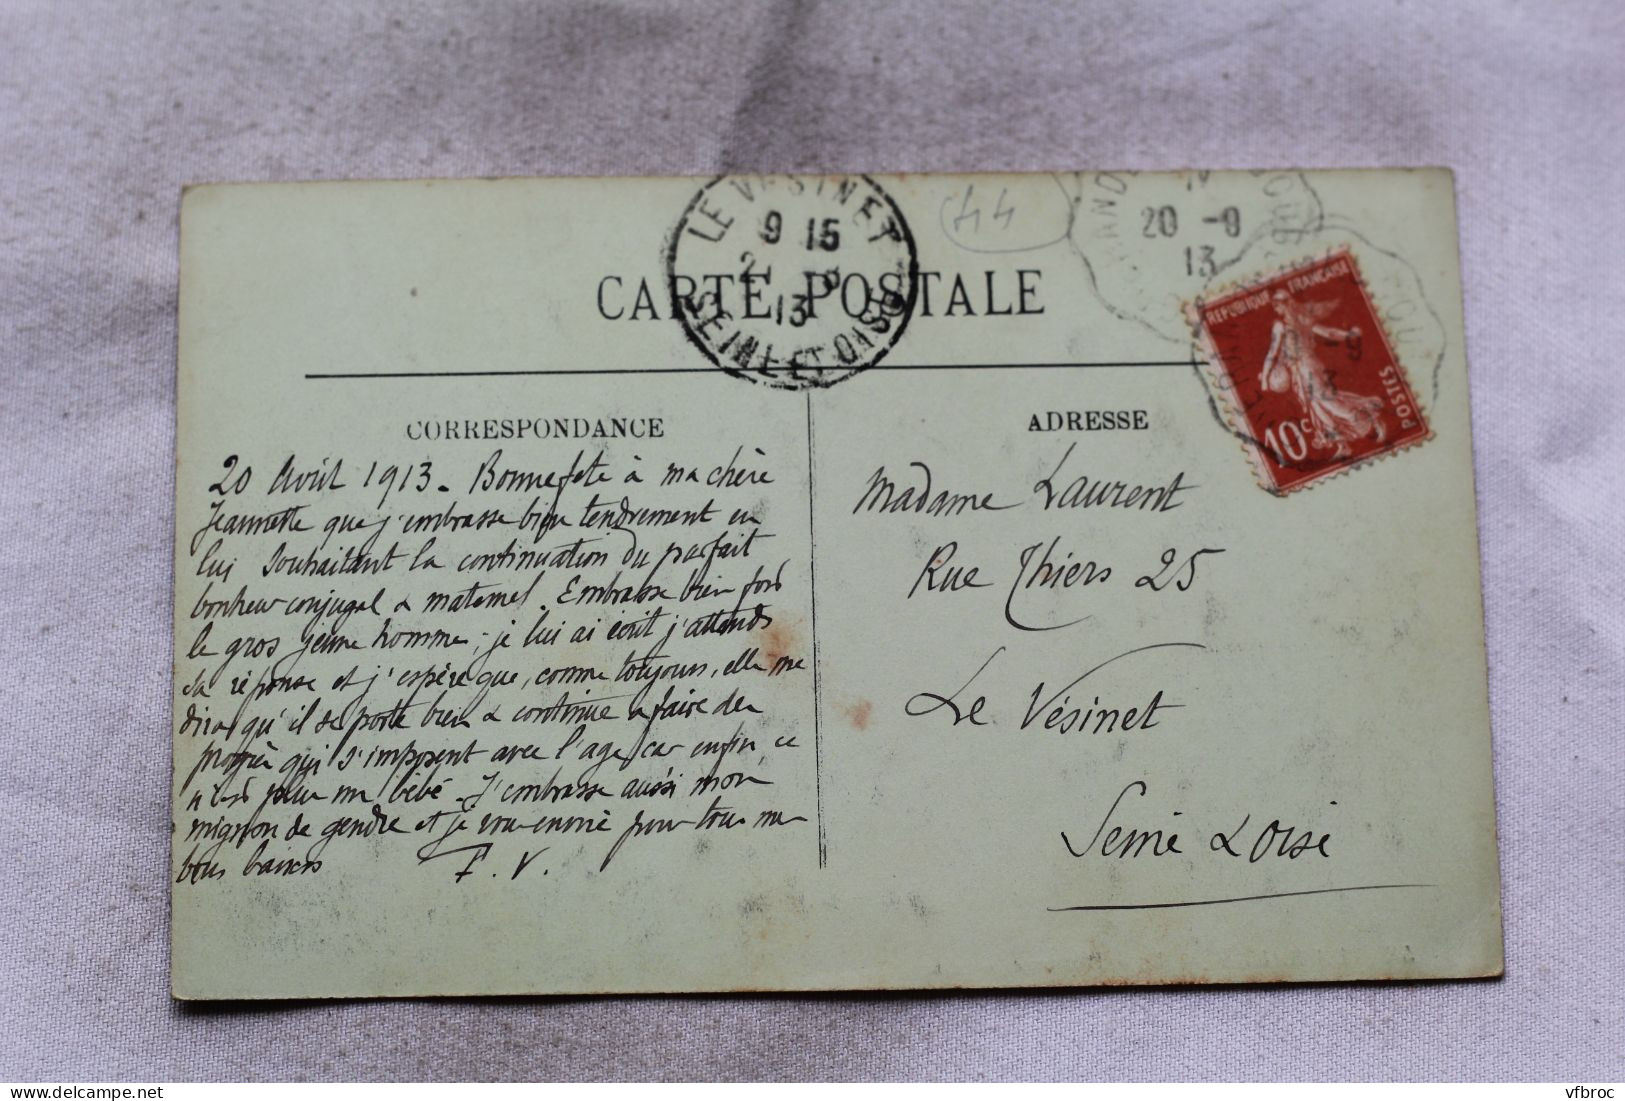 LE VESINET
9 15
2 8
13
SEINE ET OISE
44
20 -8
13
CARTE POSTALE
REPUBLIQUE FRANÇAISE
POSTES
10c
13
CORRESPONDANCE
ADRESSE
20 Août 1913 - Bonne fete à ma chère
Jeannette que j'embrasse bien tendrement en
lui souhaitant la continuation du parfait
bonheur conjugal & maternel. Embrasse bien fort
le gros jeune homme ; je lui ai écrit j'attends
sa réponse et j'espère que, comme toujours, elle me
dira qu'il se porte bien & continue a faire des
progrès qui s'imposent avec l'age car enfin, ce
n'est plus un bébé - J'embrasse aussi mon
mignon de gendre et je vous envoie pour tous mes
bons baisers F. V.
Madame Laurent
Rue Thiers 25
Le Vésinet
Seine & Oise
vfbroc